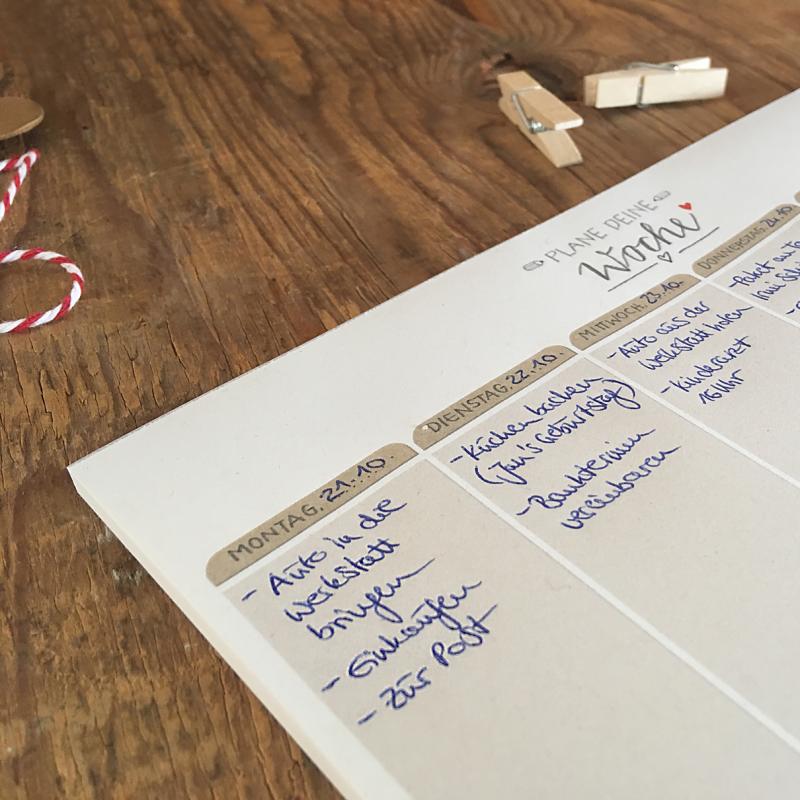 PLANE DEINE
Woche
MONTAG, 21.10.
- Auto in die
Werkstatt
bringen
- Einkaufen
- Zur Post
DIENSTAG, 22.10.
- Kuchen backen
(Jan's Geburtstag)
- Banktermin
vereinbaren
MITTWOCH, 23.10.
- Auto aus der
Werkstatt holen
- Kinderarzt
16 Uhr
DONNERSTAG, 24.10.
- Paket an